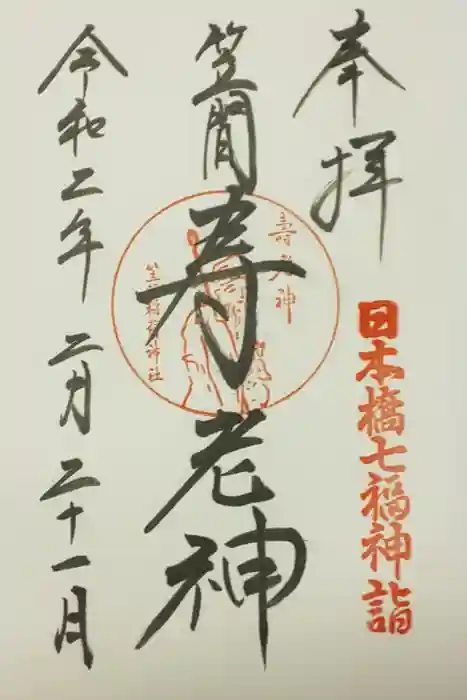 奉拝
日本橋七福神詣
笠間
寿老神
壽老神
笠間稲荷神社
令和二年 二月二十一月